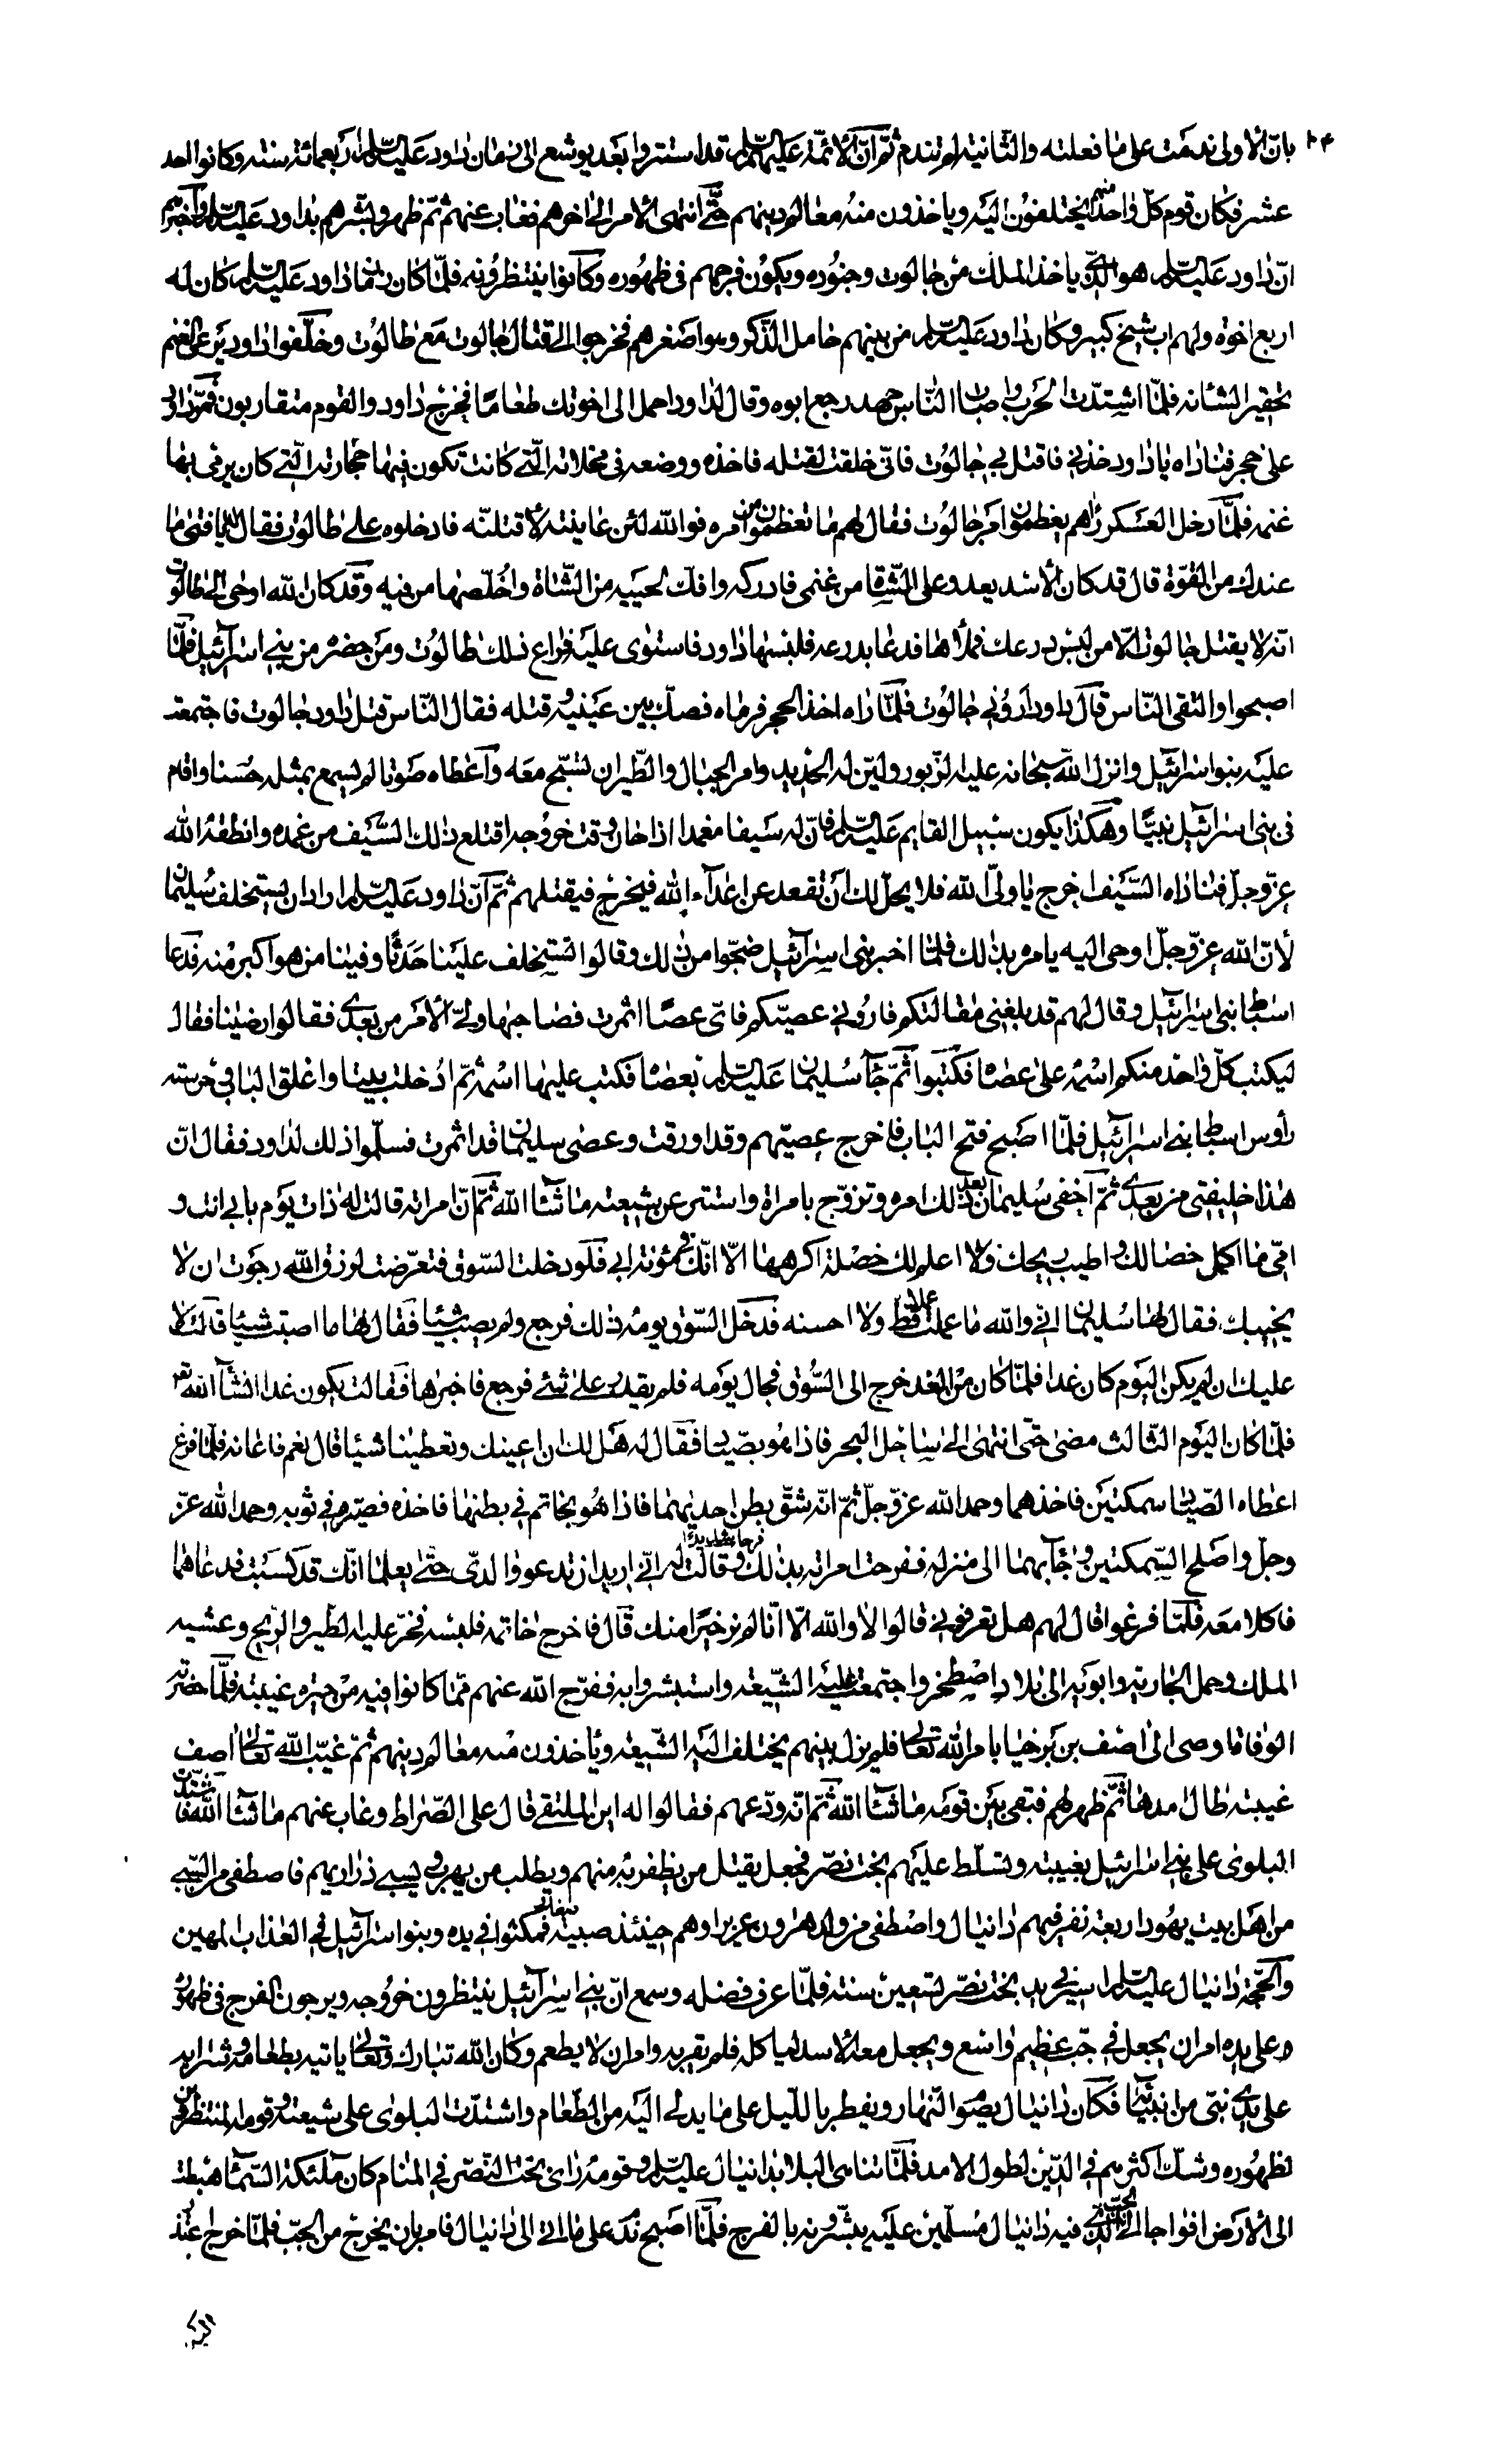 ١٠٤ بانّ الأولى ندمت على ما فعلته والثانية لم تندم ثمّ انّ الأئمّة عليهم السّلم قد استتروا بعد يوشع الى زمان داود عليه السّلم اربعمائة سنة وكانوا احد
عشر فكان قوم كلّ واحد منهم يختلفون اليه وياخذون منه معالم دينهم حتّى انتهى الأمر الى اخرهم فغاب عنهم ثمّ ظهر وبشّرهم بداود عليه السّلم واخبرهم
انّ داود عليه السّلم هو الّذى ياخذ الملك من جالوت وجنوده ويكون فرجهم فى ظهوره وكانوا ينتظرونه فلمّا كان زمان داود عليه السّلم كان له
اربع اخوة ولهم اب شيخ كبير وكان داود عليه السّلم من بينهم خامل الذّكر وهو اصغرهم فخرجوا الى قتال جالوت مع طالوت وخلّفوا داود يرعى الغنم
تحقيرا لشانه فلمّا اشتدّت الحرب واصاب النّاس جهد رجع ابوه وقال لداود احمل الى اخوتك طعاما فخرج داود والقوم متقاربون فمرّ داود
على حجر فناداه يا داود خذنى فاقتل بى جالوت فانّى خلقت لقتله فاخذه ووضعه فى مخلاته الّتى كانت تكون فيها حجارته الّتى كان يرمى بها
غنمه فلمّا دخل العسكر راهم يعظمون امر جالوت فقال لهم ما تعظمون من امره فوالله لئن عاينته لأقتلنّه فادخلوه على طالوت فقال له يا فتى ما
عندك من القوّة قال قد كان الأسد يعدو على الشّاة من غنمى فادركه وافكّ لحييه من الشّاة واخلّصها من فيه وقد كان الله اوحى الى طالوت
انّه لا يقتل جالوت الّا من لبس درعك فملأها فدعا بدرعه فلبسها داود فاستوى عليه فراع ذلك طالوت ومن حضره من بنى اسرآئيل فلمّا
اصبحوا والتقى النّاس قال داود ارونى جالوت فلمّا راه اخذ الحجر فرماه فصكّ بين عينيه وقتله فقال النّاس قتل داود جالوت فاجتمعت
عليه بنو اسرائيل وانزل الله سبحانه عليه الزّبور وليّن له الحديد وامر الجبال والطّير ان تسبّح معه واعطاه صوتا لم يسمع بمثله حسنا واقام
فى بنى اسرآئيل نبيّا وهكذا يكون سبيل القايم عليه السّلم فانّ له سيفا مغمدا اذا حان وقت خروجه اقتلع ذلك السّيف من غمده وانطقه الله
عزّ وجلّ فناداه السّيف اخرج يا ولىّ الله فلا يحلّ لك ان تقعد عن اعدآء الله فيخرج فيقتلهم ثمّ انّ داود عليه السّلم اراد ان يستخلف سليمان
لأنّ الله عزّ وجلّ اوحى اليه يامره بذلك فلمّا اخبر بنى اسرآئيل ضجّوا من ذلك وقالوا تستخلف علينا حدثا وفينا من هو اكبر منه فدعا
اسباط بنى اسرآئيل وقال لهم قد بلغنى مقالتكم فارونى عصيّكم فاىّ عصا اثمرت فصاحبها ولىّ الأمر من بعدى فقالوا رضينا فقال
ليكتب كلّ واحد منكم اسمه على عصاه فكتبوا ثمّ جآء سليمان عليه السّلم بعصاه فكتب عليها اسمه ثمّ ادخلت بيتا واغلق الباب وحرسته
رأوس اسباط بنى اسرآئيل فلمّا اصبح فتح الباب فاخرج عصيّهم وقد اورقت وعصى سليمان قد اثمرت فسلّموا ذلك لداود فقال انّ
هذا خليفتى من بعدى ثمّ اخفى سليمان بعد ذلك امره وتزوّج بامراة واستتر عن شيعته ما شآء الله ثمّ انّ امراته قالت له ذات يوم بابى انت و
امّى ما اكمل خصالك واطيب ريحك ولا اعلم لك خصلة اكرهها الّا انّك فى مؤنة ابى فلو دخلت السّوق فتعرّضت لرزق الله رجوت ان لا
يخيبك فقال لها سليمان انّى والله ما عملت عملا قطّ ولا احسنه فدخل السّوق يومه ذلك فرجع ولم يصب شيئا فقال لها ما اصبت شيئا قالت لا
عليك ان لم يكن اليوم كان غدا فلمّا كان من الغد خرج الى السّوق فجال يومه فلم يقدر على شئ فرجع فاخبرها فقالت يكون غدا انشآء الله تعم
فلمّا كان اليوم الثّالث مضى حتّى انتهى الى ساحل البحر فاذا هو بصيّاد فقال له هل لك ان اعينك وتعطينا شيئا قال نعم فاعانه فلمّا فرغ
اعطاه الصّياد سمكتين فاخذهما وحمد الله عزّ وجلّ ثمّ انّه شقّ بطن احديهما فاذا هو بخاتم فى بطنها فاخذه فصيّره فى ثوبه وحمد الله عزّ
وجلّ واصلح السّمكتين وجآء بهما الى منزله ففرحت امراته بذلك فرحا شديدا وقالت له انّى اريد ان تدعو والدىّ حتّى يعلما انّك قد كسبت فدعاهما
فاكلا معه فلمّا فرغوا قال لهم هل تعرفونى قالوا لا والله الّا انّا لم نر خيرا منك قال فاخرج خاتمه فلبسه فخرّ عليه الطّير والرّيح وغشيه
الملك وحمل الجارية وابويه الى بلاد اصطخر واجتمعت عليه الشّيعة واستبشروا به ففرّج الله عنهم ممّا كانوا فيه من حيرة غيبته فلمّا حضرته
الوفاة اوصى الى اصف بن برخيا بامر الله تعالى فلم يزل بينهم يختلف اليه الشّيعة وياخذون منه معالم دينهم ثمّ غيّب الله تعالى اصف
غيبة طال امدها ثمّ ظهر لهم فبقى بين قومه ما شآء الله ثمّ انّه ودّعهم فقالوا له اين الملتقى قال على الصّراط وغاب عنهم ما شآء الله فاشتدّت
البلوى على بنى اسرائيل بغيبته وتسلّط عليهم بخت نصّر فجعل يقتل من يظفر به منهم ويطلب من يهرب ويسبى ذراريهم فاصطفى من السّبى
من اهل بيت يهودا اربعة نفر فيهم دانيال واصطفى من ولد هرون عزيرا وهم حينئذ صبية صغار فمكثوا فى يده وبنو اسرآئيل فى العذاب المهين
والحجّة دانيال عليه السّلم اسير بيد بخت نصّر تسعين سنة فلمّا عرف فضله وسمع انّ بنى اسرآئيل ينتظرون خروجه ويرجون الفرج فى ظهوره
وعلى يده امر ان يجعل فى جبّ عظيم واسع ويجعل معه الأسد لياكله فلم يقربه وامر ان لا يطعم وكان الله تبارك وتعالى ياتيه بطعامه وشرابه
على يدى نبىّ من انبيآئه فكان دانيال يصوم النّهار ويفطر باللّيل على ما يدلى اليه من الطّعام واشتدّت البلوى على شيعته وقومه المنتظرين
لظهوره وشكّ اكثرهم فى الدّين لطول الامد فلمّا تناهى البلاء بدانيال عليه السّلم وقومه راى بخت النّصر فى المنام كان ملئكة السّمآء هبطت
الى الأرض افواجا الى الجبّ الّذى فيه دانيال مسلّمين عليه يبشّرونه بالفرج فلمّا اصبح ندم على ما اتى الى دانيال فامر بان يخرج من الجبّ فلمّا اخرج اعتذر
اليه